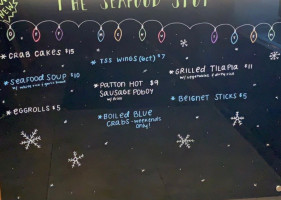 THE SEAFOOD STOP
* CRAB CAKES $15
* SEAFOOD SOUP $10
* EGGROLLS $5
* TSS WINGS (6CT) $7
* PATTON HOT $9
SAUSAGE POBOY
* BOILED BLUE
CRABS - WEEKENDS
ONLY!
* GRILLED TILAPIA $11
* BEIGNET STICKS $5